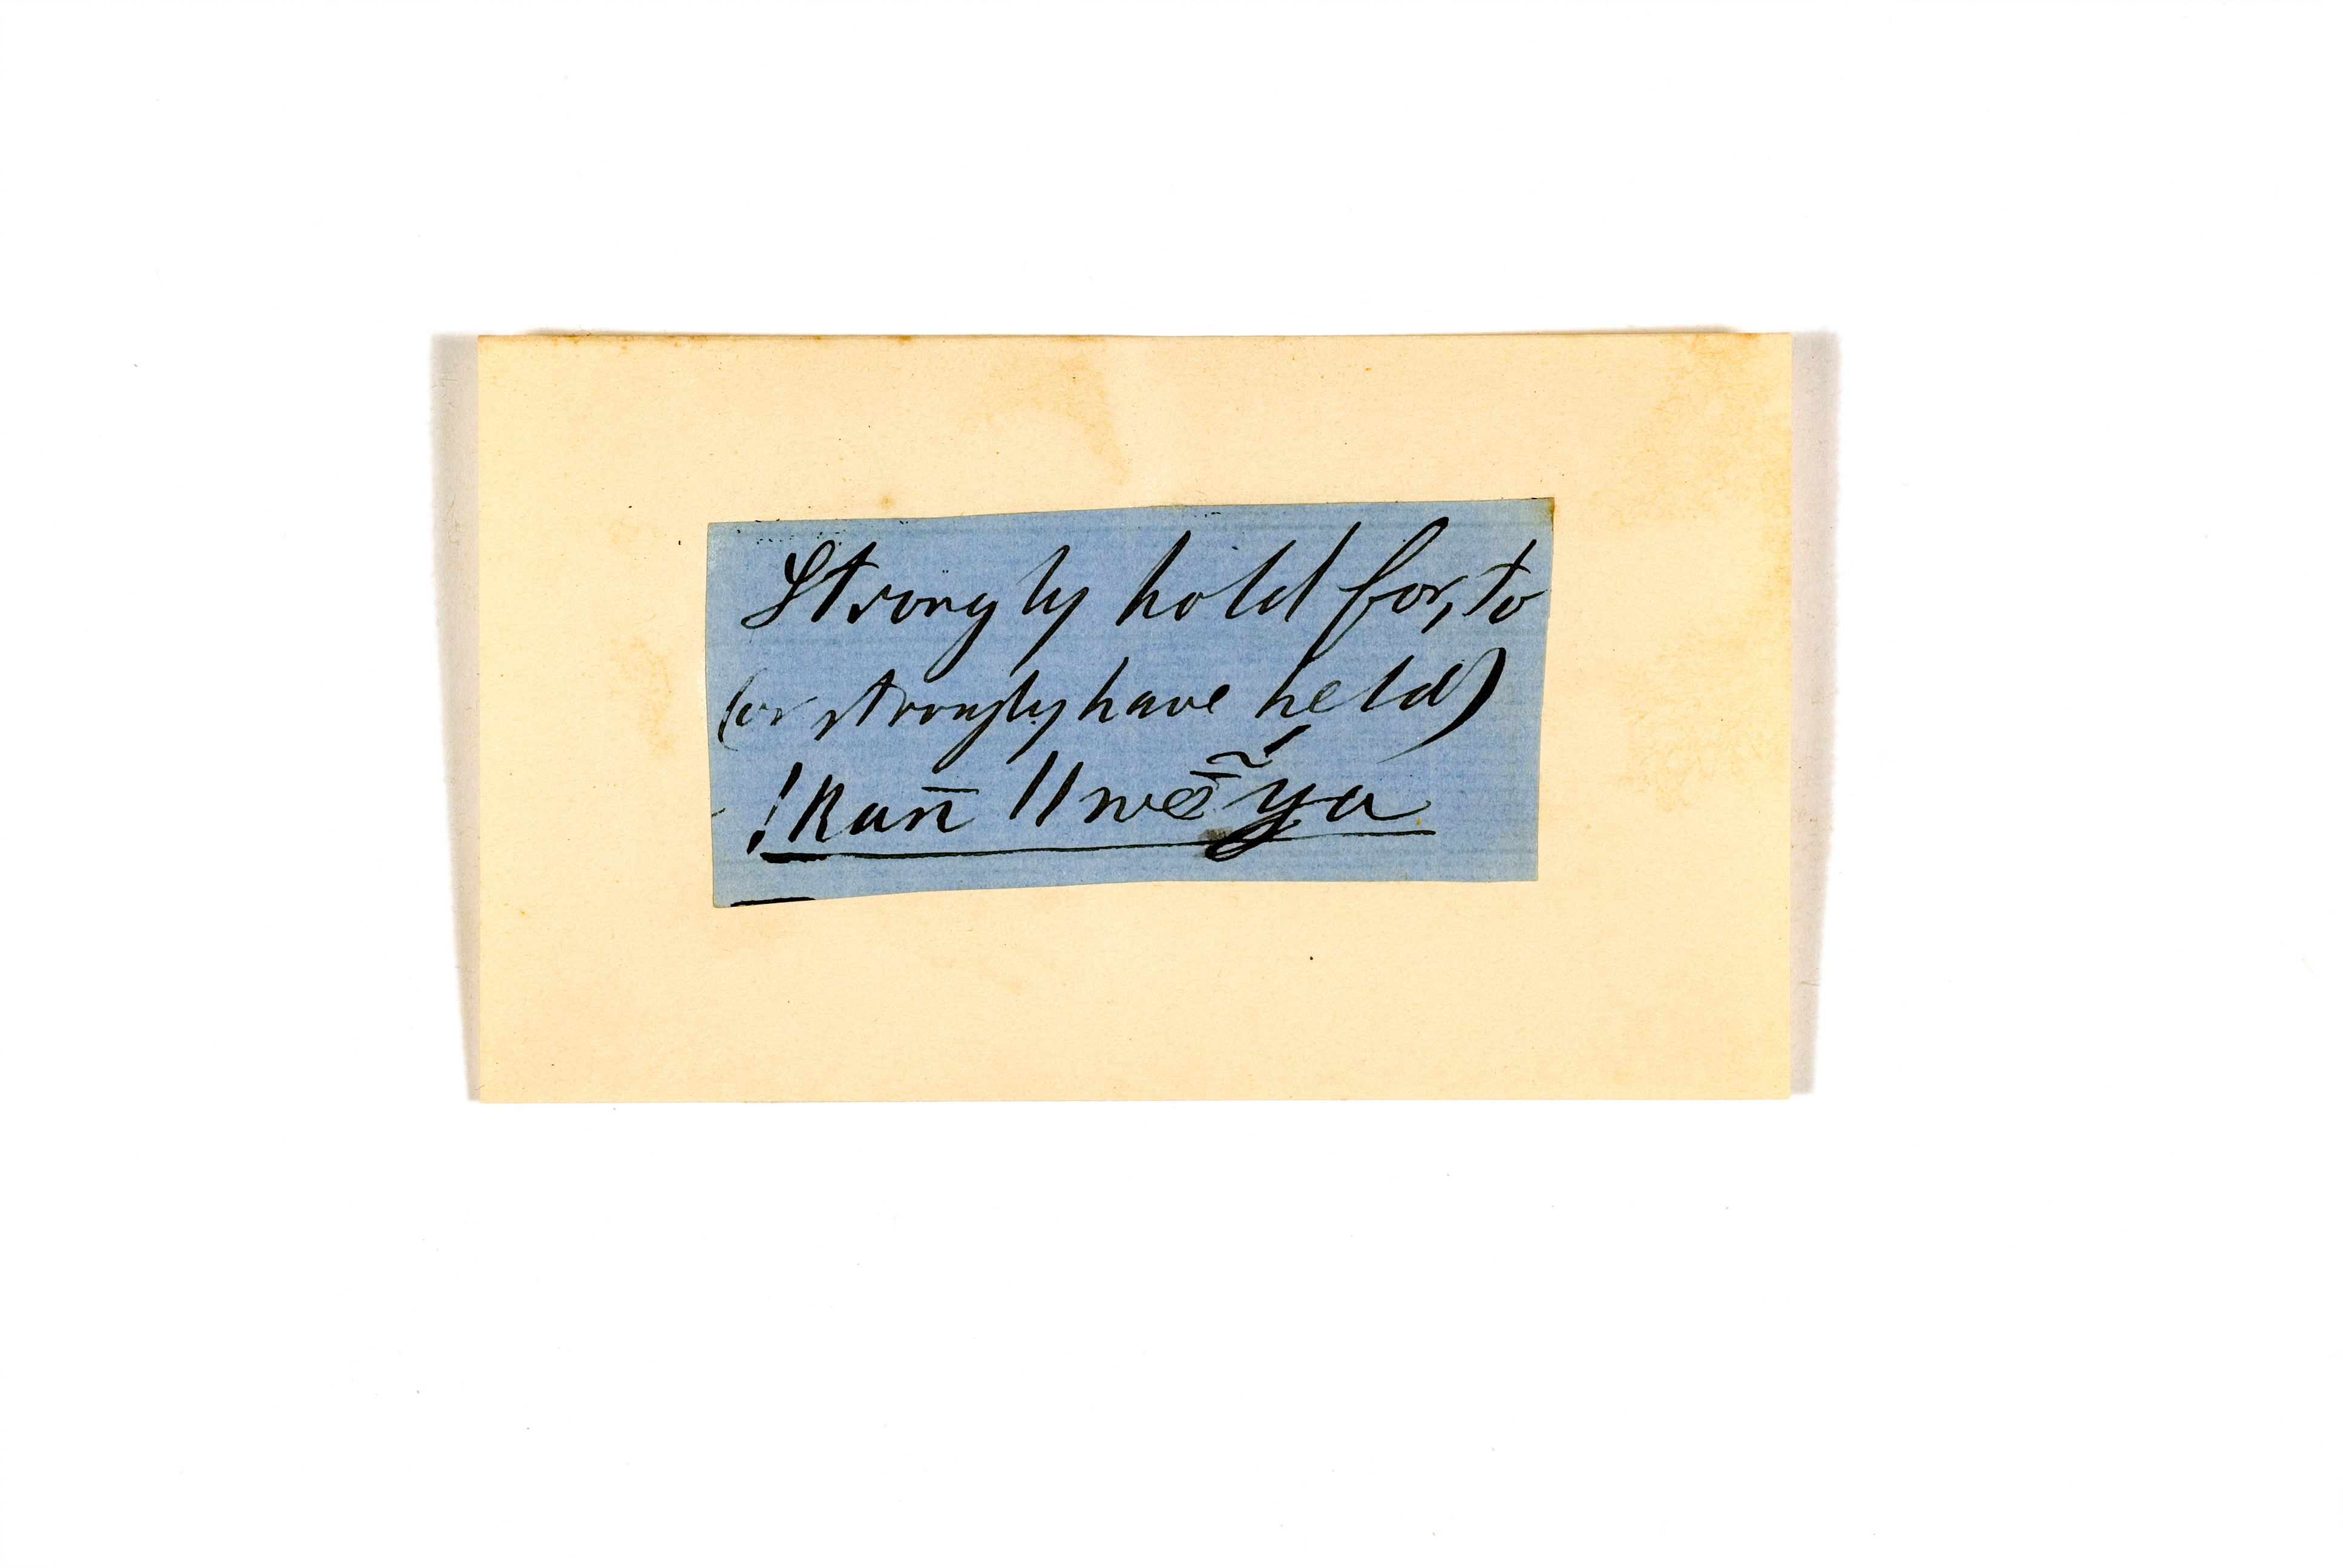 Strongly hold for, to
(or strongly have held)
!kan̄ ǁnwe